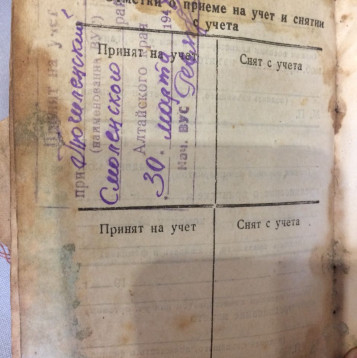 Отметки о приеме на учет и снятии
с учета
Принят на учет
Снят с учета
Принят на учет
при
(наименование ВУС)
Смоленского
Алтайского края
30 марта 194
Нач. ВУС
Принят на учет
Снят с учета